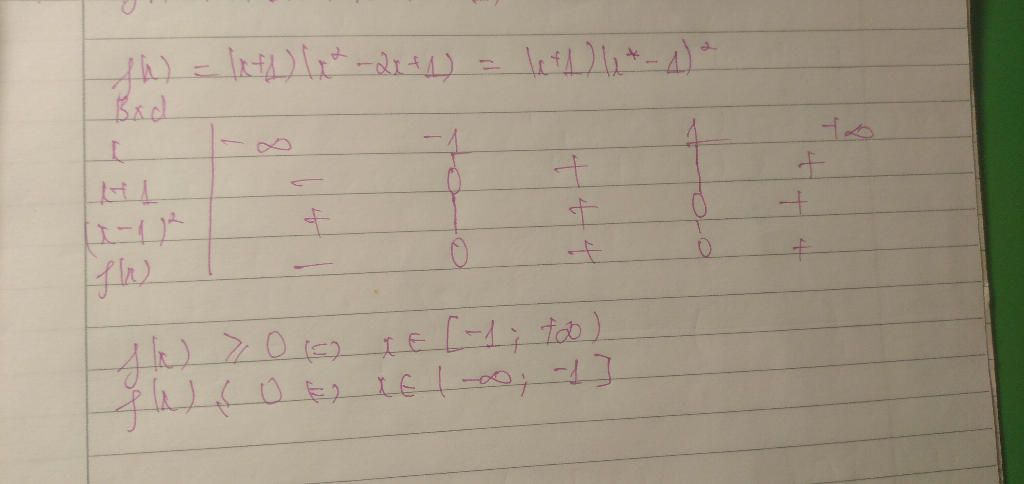 f(x) = (x+1)(x² - 2x + 1) = (x+1)(x - 1)²
Bxd
x | -∞ -1 1 +∞
x+1 - 0 + | +
(x-1)² + | + 0 +
f(x) - 0 + 0 +
f(x) ⩾ 0 ⇔ x ∈ [-1; +∞)
f(x) ⩽ 0 ⇔ x ∈ (-∞; -1]